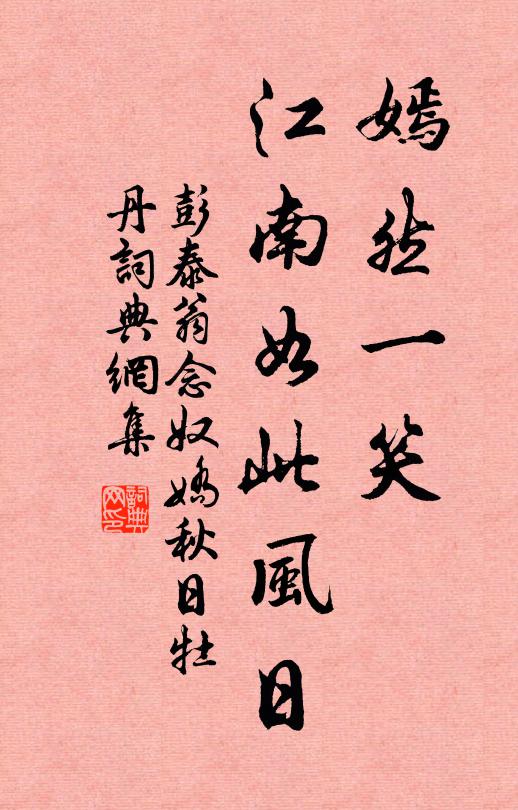 嫣然一笑
江南如此風日
彭泰翁念奴嬌秋日牡
丹詞典網集
詞典
网印